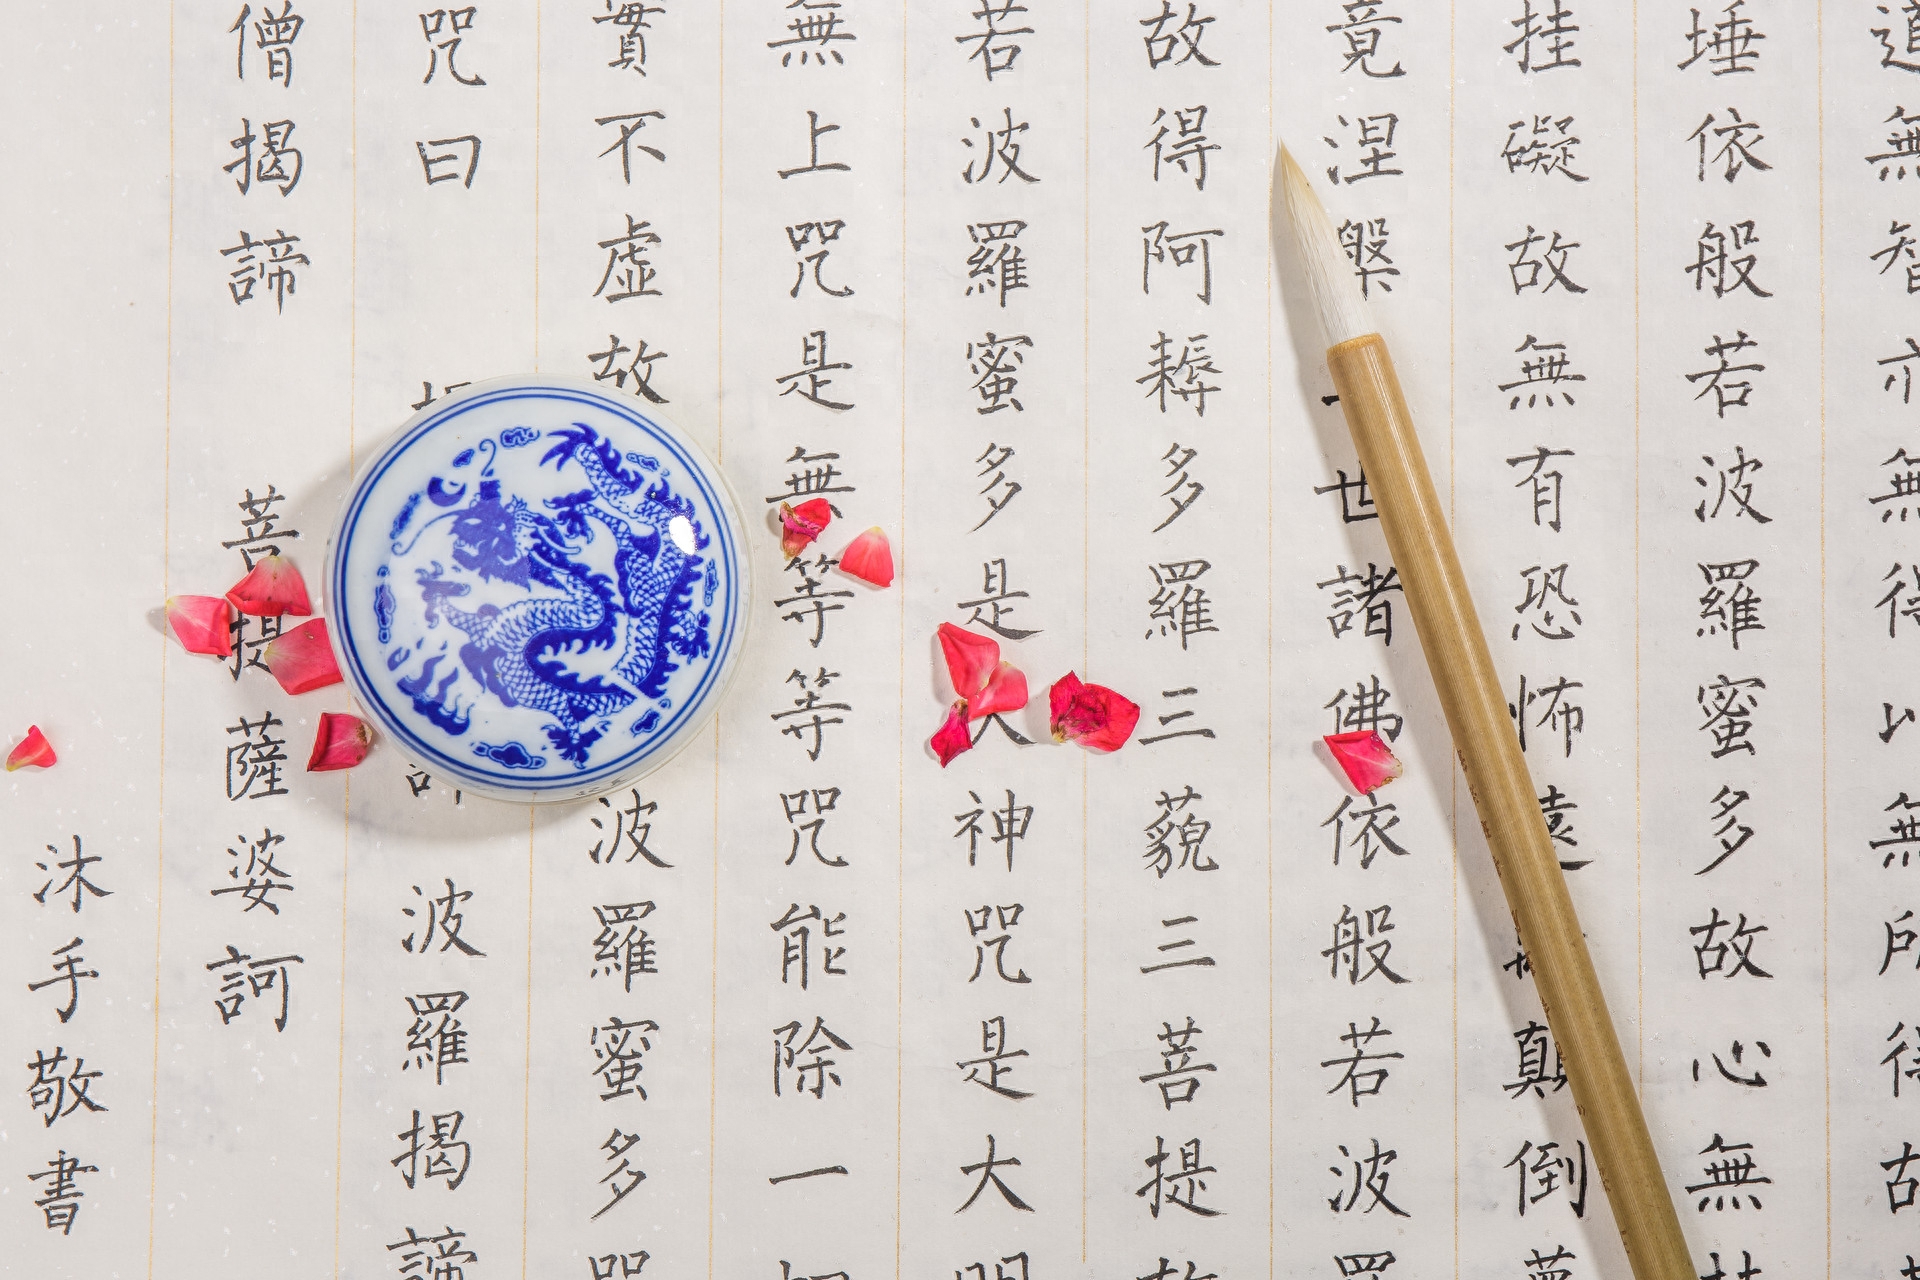 道無智亦無得以無所得故
埵依般若波羅蜜多故心無
挂礙故無有恐怖遠顛倒
竟涅槃世諸佛依般若波羅
故得阿耨多羅三藐三菩提故
若波羅蜜多是大神咒是大明
無上咒是無等等咒能除一切
實不虛故波羅蜜多咒
咒曰 波羅揭諦
僧揭諦 菩提薩婆訶
沐手敬書